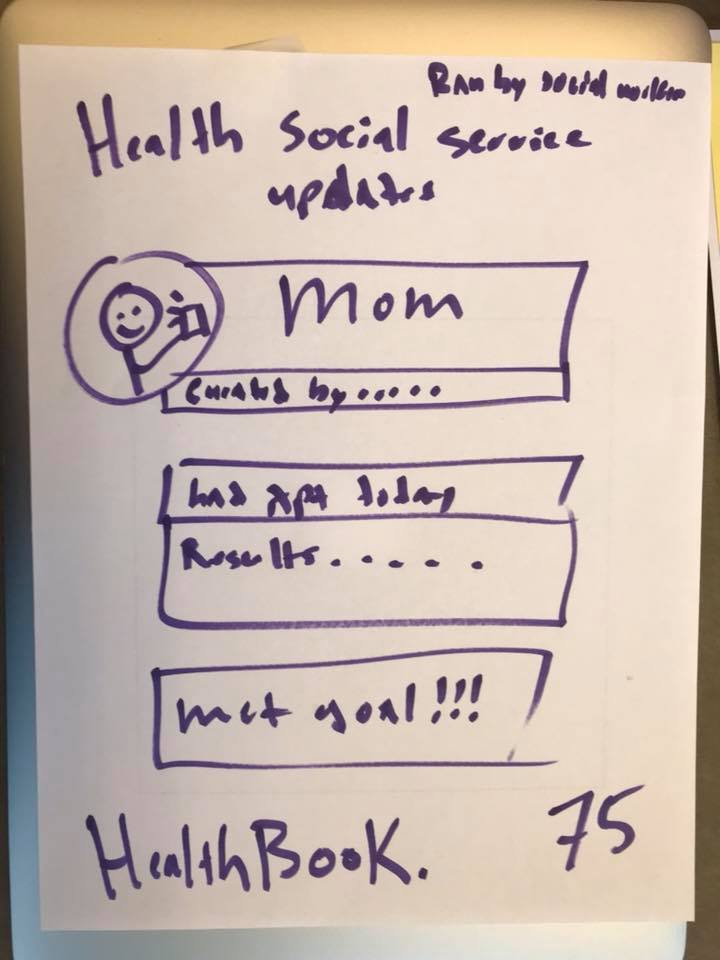 Ran by social worker
Health Social service
updates
Mom
Curated by.....
had apt today
Results.....
met goal!!!
HealthBook.
75